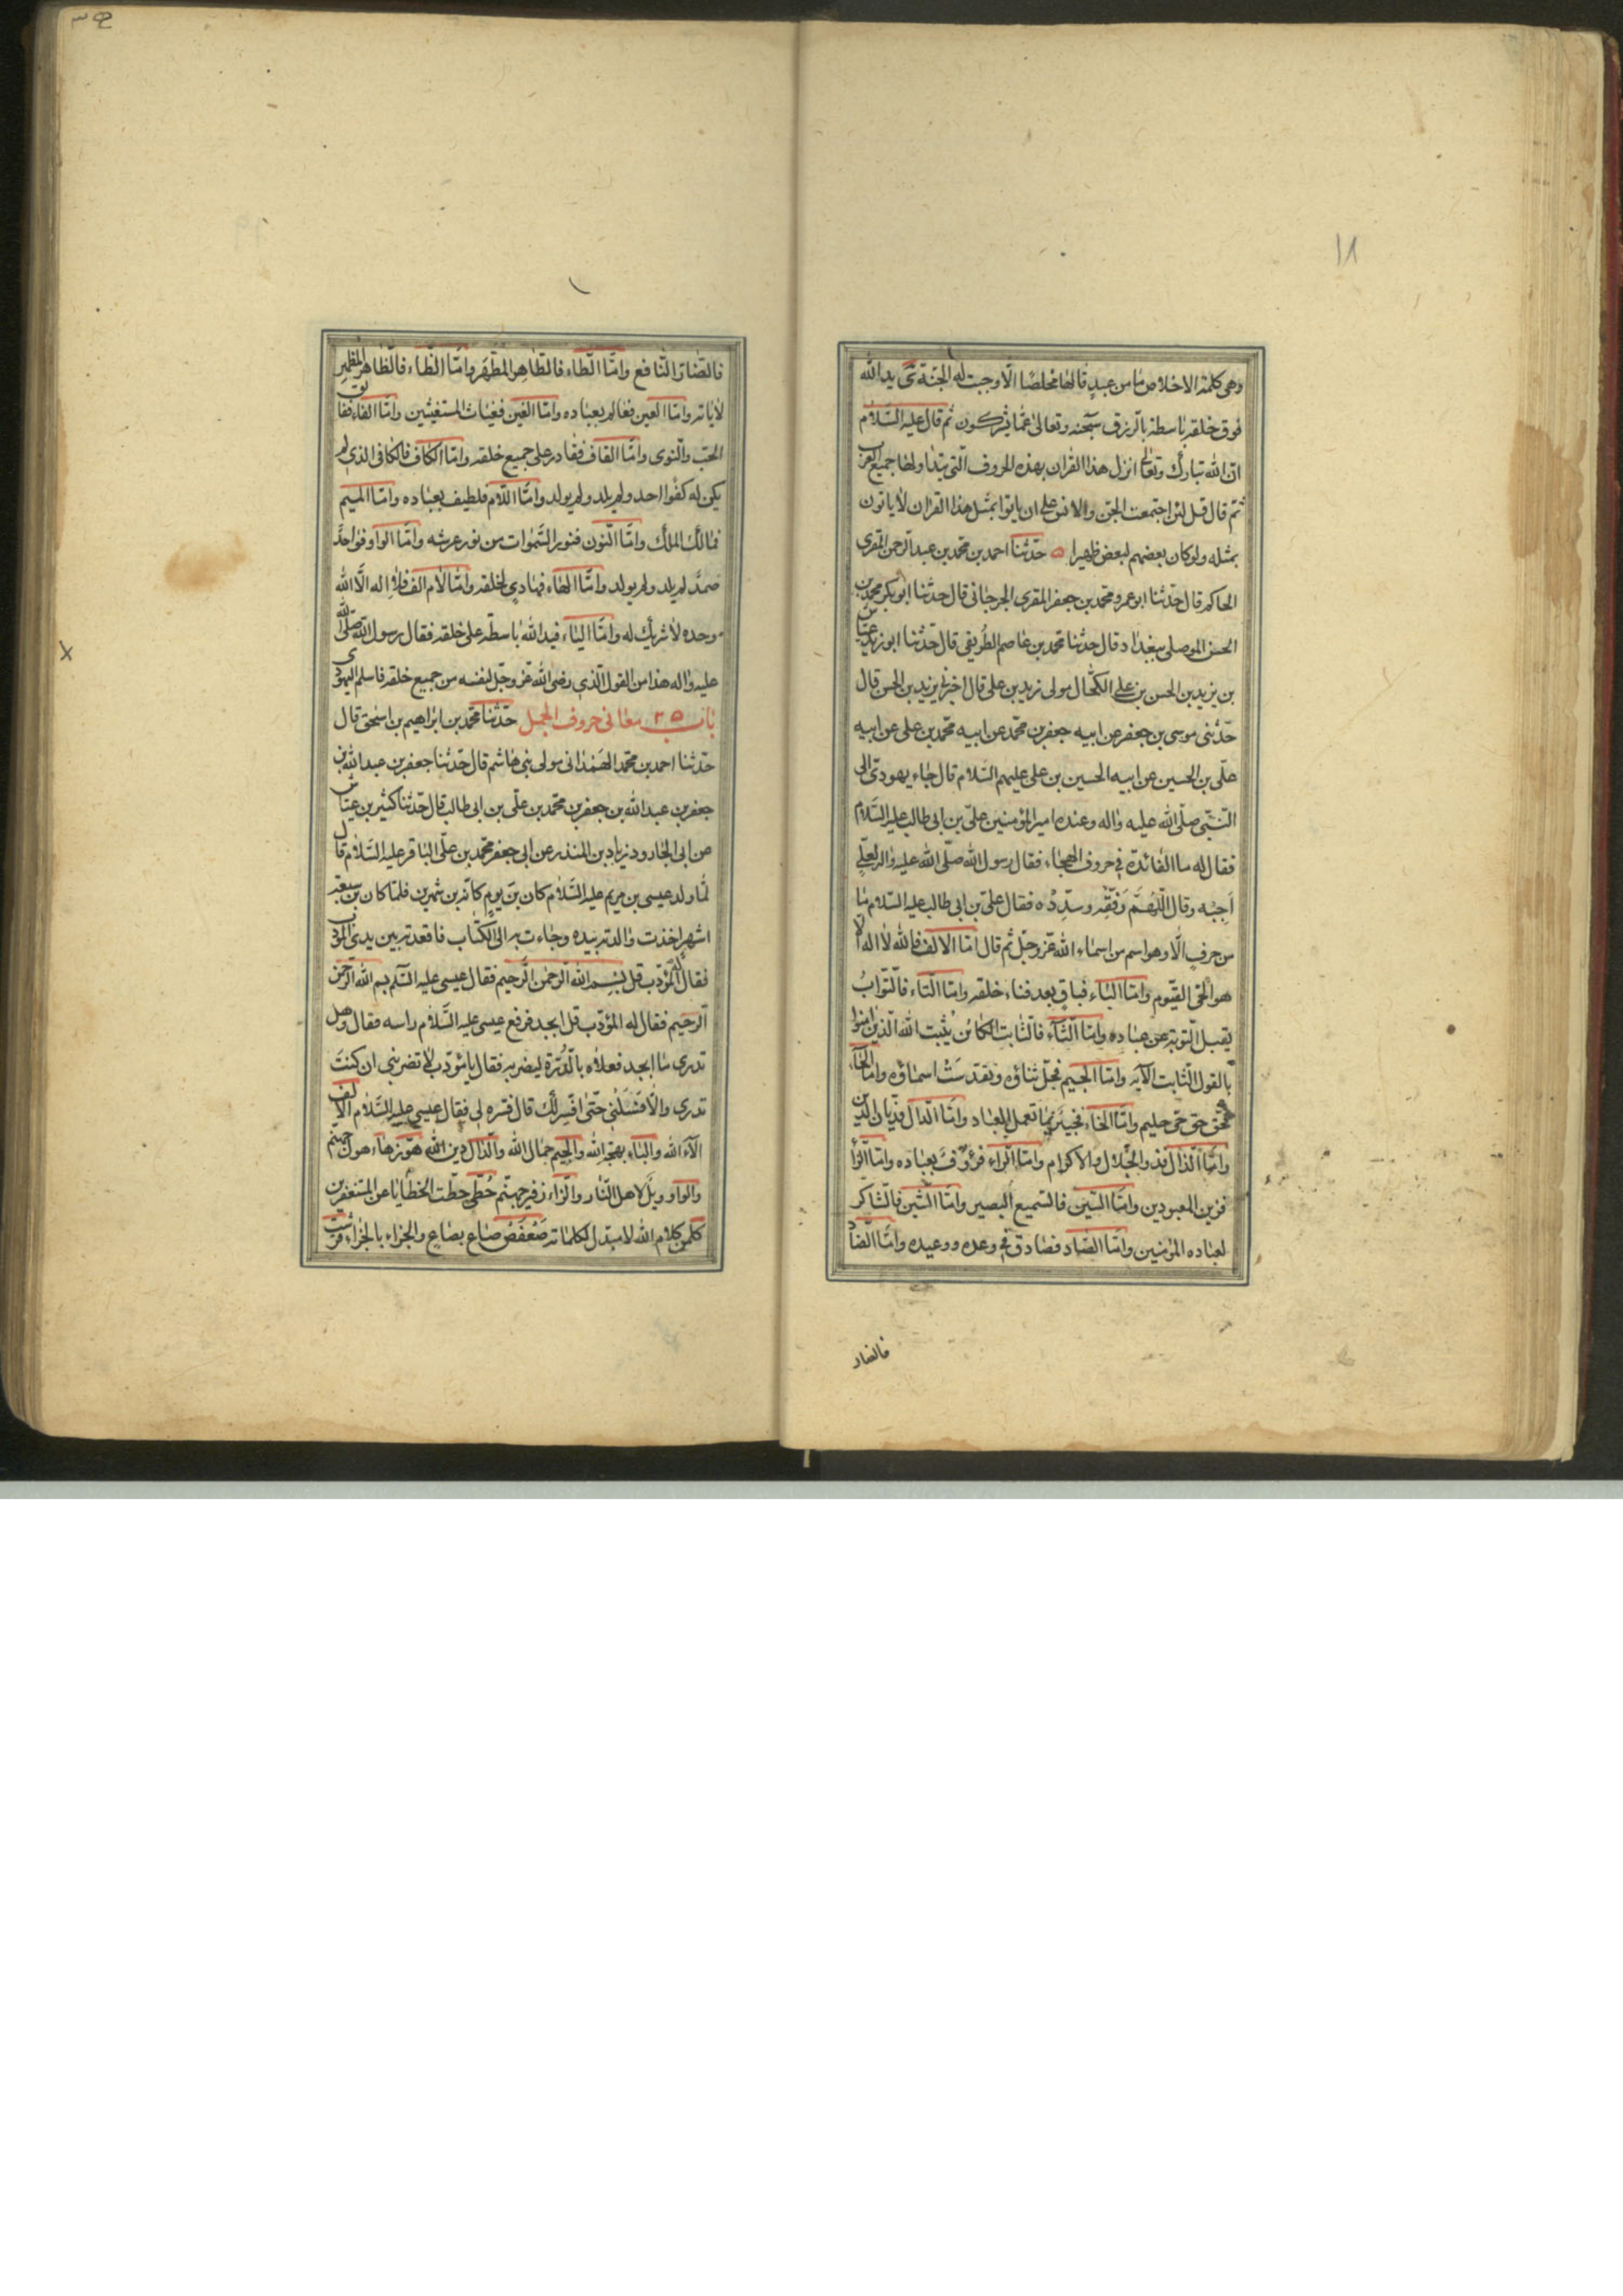 ١٨
وهى كلمة الاخلاص ما من عبدٍ قالها مخلصًا الّا وجبت له الجنّة ى يد الله
فوق خلقه باسطة بالرزق سبحنه وتعالى عمّا يشركون ثم قال عليه السّلام
انّ الله تبارك وتعالى انزل هذا القران بهذه الحروف الّتى يتداولها جميع العرب
ثم قال قل لئن اجتمعت الجنّ والانس على ان ياتوا بمثل هذا القران لا ياتون
بمثله ولو كان بعضهم لبعض ظهيرا ه حدّثنا احمد بن محمد بن عبد الرحمن المقرى
الحاكم قال حدّثنا ابو عمرو محمد بن جعفر المقرى الجرجانى قال حدّثنا ابو بكر محمد بن
الحسن الموصلى ببغداد قال حدّثنا محمد بن عاصم الطريفى قال حدّثنا ابو زيد عيّاش
بن يزيد بن الحسن بن على الكحّال مولى زيد بن على قال اخبرنى يزيد بن الحسن قال
حدّثنى موسى بن جعفر عن ابيه جعفر بن محمّد عن ابيه محمّد بن على عن ابيه
علّى بن الحسين عن ابيه الحسين بن على عليهم السّلام قال جاء يهودىّ الى
النّبّى صلّى الله عليه واله وعنده امير المؤمنين علىّ بن ابى طالب عليه السّلام
فقال له ما الفائدة فى حروف الهجاء فقال رسول الله صلّى الله عليه واله لعلىّ
اَجِبْه وقال اللّهُمَّ وَفّقه وسدِّدْه فقال علىّ بن ابى طالب عليه السّلام ما
من حرفٍ الّا وهو اسم من اسماء الله عزّ وجلّ ثم قال امّا الالف فالله لا اله الا
هو الحىّ القيّوم وامّا الباء فباقٍ بعد فناء خلقه وامّا التّاء فالتّوّابُ
يقبل التّوبة عن عباده وامّا الثّاء فالثّابت الكائن يُثبت الله الّذين امنوا
بالقول الثّابت الاية وامّا الجيم فجلّ ثناؤه وتقدسَتْ اسماؤه وامّا الحاء
فحقّ حىّ حليم وامّا الخاء فخبيرٌ بما تعمل العباد وامّا الدّال فديّان الدّين
وامّا الذّال فذو الجلال والاكرام وامّا الرّاء فرؤفٌ بعباده وامّا الزّاء
فزين المعبودين وامّا السّين فالسّميع البصير وامّا الشّين فالشّاكر
لعباده المؤمنين وامّا الصّاد فصادق فى وعده ووعيده وامّا الضّاد
فالضار
فالضّارّ النّافع وامّا الطّاء فالطّاهر المطهّر وامّا الظّاء فالظّاهر المُظهِر
لاياته وامّا العين فعالم بعباده وامّا الغين فغياث المستغيثين وامّا الفاء ففالق
الحبّ والنّوى وامّا القاف فقادر على جميع خلقه وامّا الكاف فالكافى الذى لم
يكن له كفوا احد ولم يلد ولم يولد وامّا اللّام فلطيف بعباده وامّا الميم
فمالك الملك وامّا النّون فنور السّموات من نور عرشه وامّا الواو فواحدٌ
صمدٌ لم يلد ولم يولد وامّا الهاء فهادى لخلقه وامّا لام الف فلا اله الّا الله
وحده لا شريك له وامّا الياء فيد الله باسطة على خلقه فقال رسول الله صلّى الله
عليه واله هذا من القول الّذى رضى الله عزّ وجلّ لنفسه من جميع خلقه فاسلم اليهودى
باب ٢٥ معانى حروف الجمل حدّثنا محمد بن ابراهيم بن اسحق قال
حدّثنا احمد بن محمد الهمدانى مولى بنى هاشم قال حدّثنا جعفر بن عبد الله بن
جعفر بن عبد الله بن جعفر بن محمّد بن علّى بن ابى طالب قال حدّثنا كثير بن عيّاش
عن ابى الجارود زياد بن المنذر عن ابى جعفر محمد بن علّى الباقر عليه السّلام قال
لمّا ولد عيسى بن مريم عليه السّلام كان بنَ يومٍ كانّه بن شهرين فلمّا كان بن سبعة
اشهر اخذت والدته بيده وجاءت به الى الكُتّاب فاقعدته بين يدى المؤدب
فقال له المؤدّب قل بسم الله الرّحمن الرّحيم فقال عيسى عليه السّلم بسم الله الرّحمن
الرّحيم فقال له المؤدّب قل ابجد فرفع عيسى عليه السّلام راسه فقال وهل
تدرى ما ابجد فعلاه بالدّرّة ليضربه فقال يا مؤدّب لا تضربنى ان كنتَ
تدرى والّا فسَلْنى حتّى افسّر لك قال فسّره لى فقال عيسى عليه السّلام الالف
الآء الله والباء بهجة الله والجيم جمال الله والدّال دين الله هوّز هاء هول جهنم
والواو ويلٌ لاهل النّار والزّاء زفير جهنّم حُطّى حطّت الخطايا عن المستغفرين
كلمن كلام الله لا مبدّل لكلماته سَعْفَصْ صاع بصاعٍ والجزاء بالجزاء قرشت